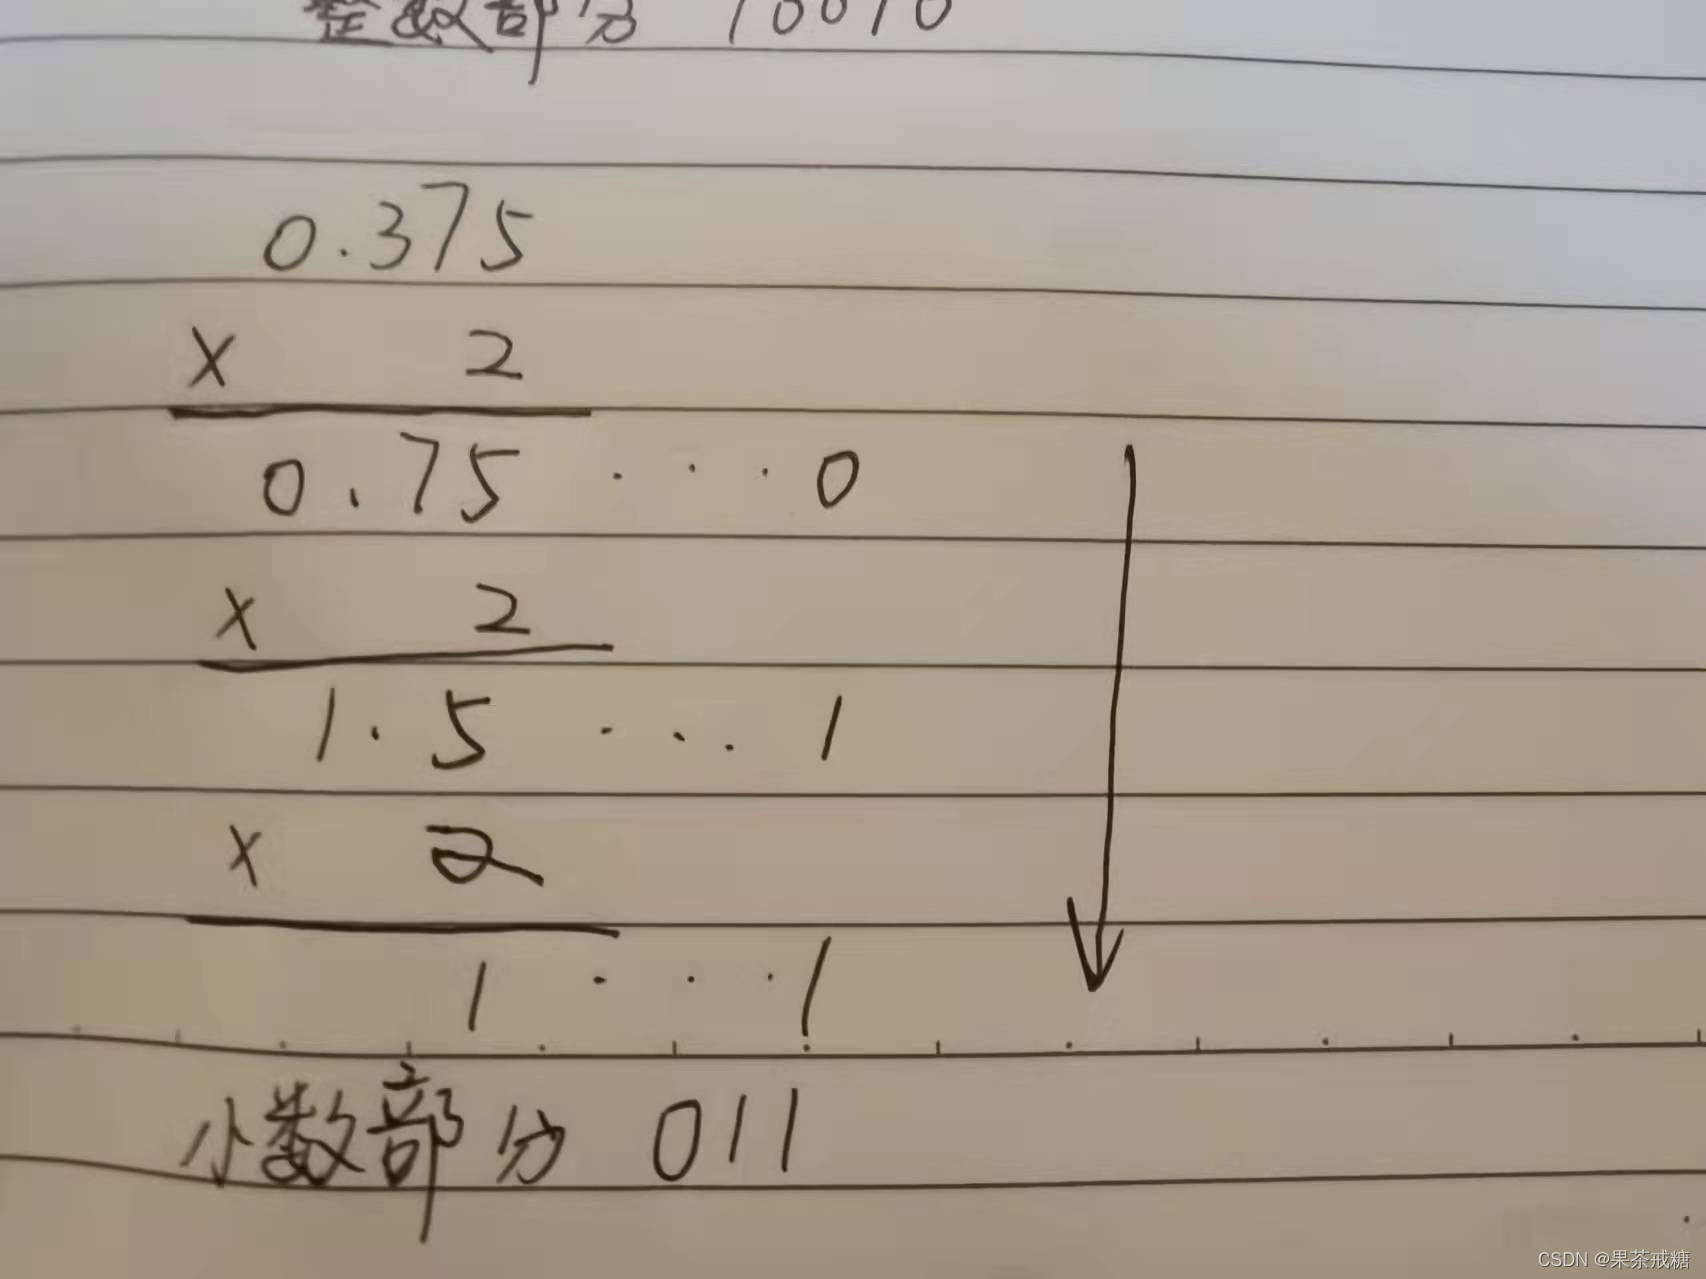 整数部分 10010
0.375
× 2
0.75 ... 0
× 2
1.5 ... 1
× 2
1 ... 1
小数部分 011
CSDN @果茶戒糖